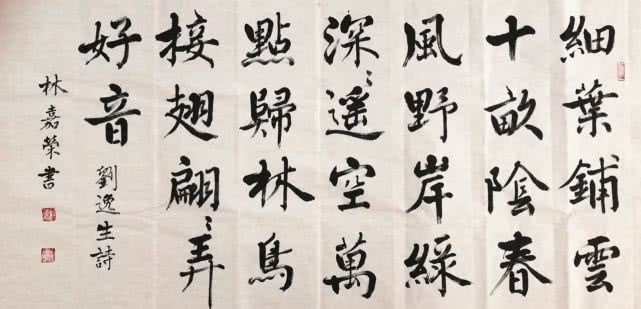 細葉鋪雲
十畝陰春
風野岸綠
深〻遥空萬
點歸林鳥
接翅翩〻弄
好音
劉逸生詩
林嘉榮書